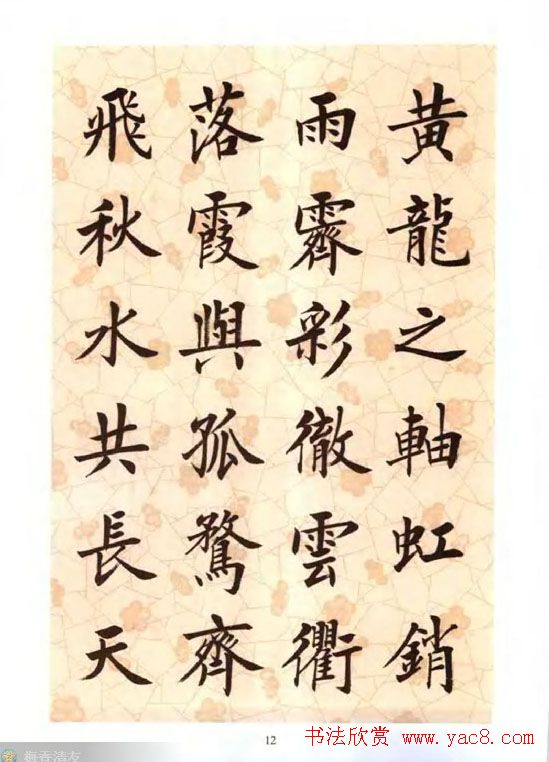 黃龍之軸虹銷
雨霽彩徹雲衢
落霞與孤鶩齊
飛秋水共長天
12
书法欣赏 www.yac8.com
梅香清友